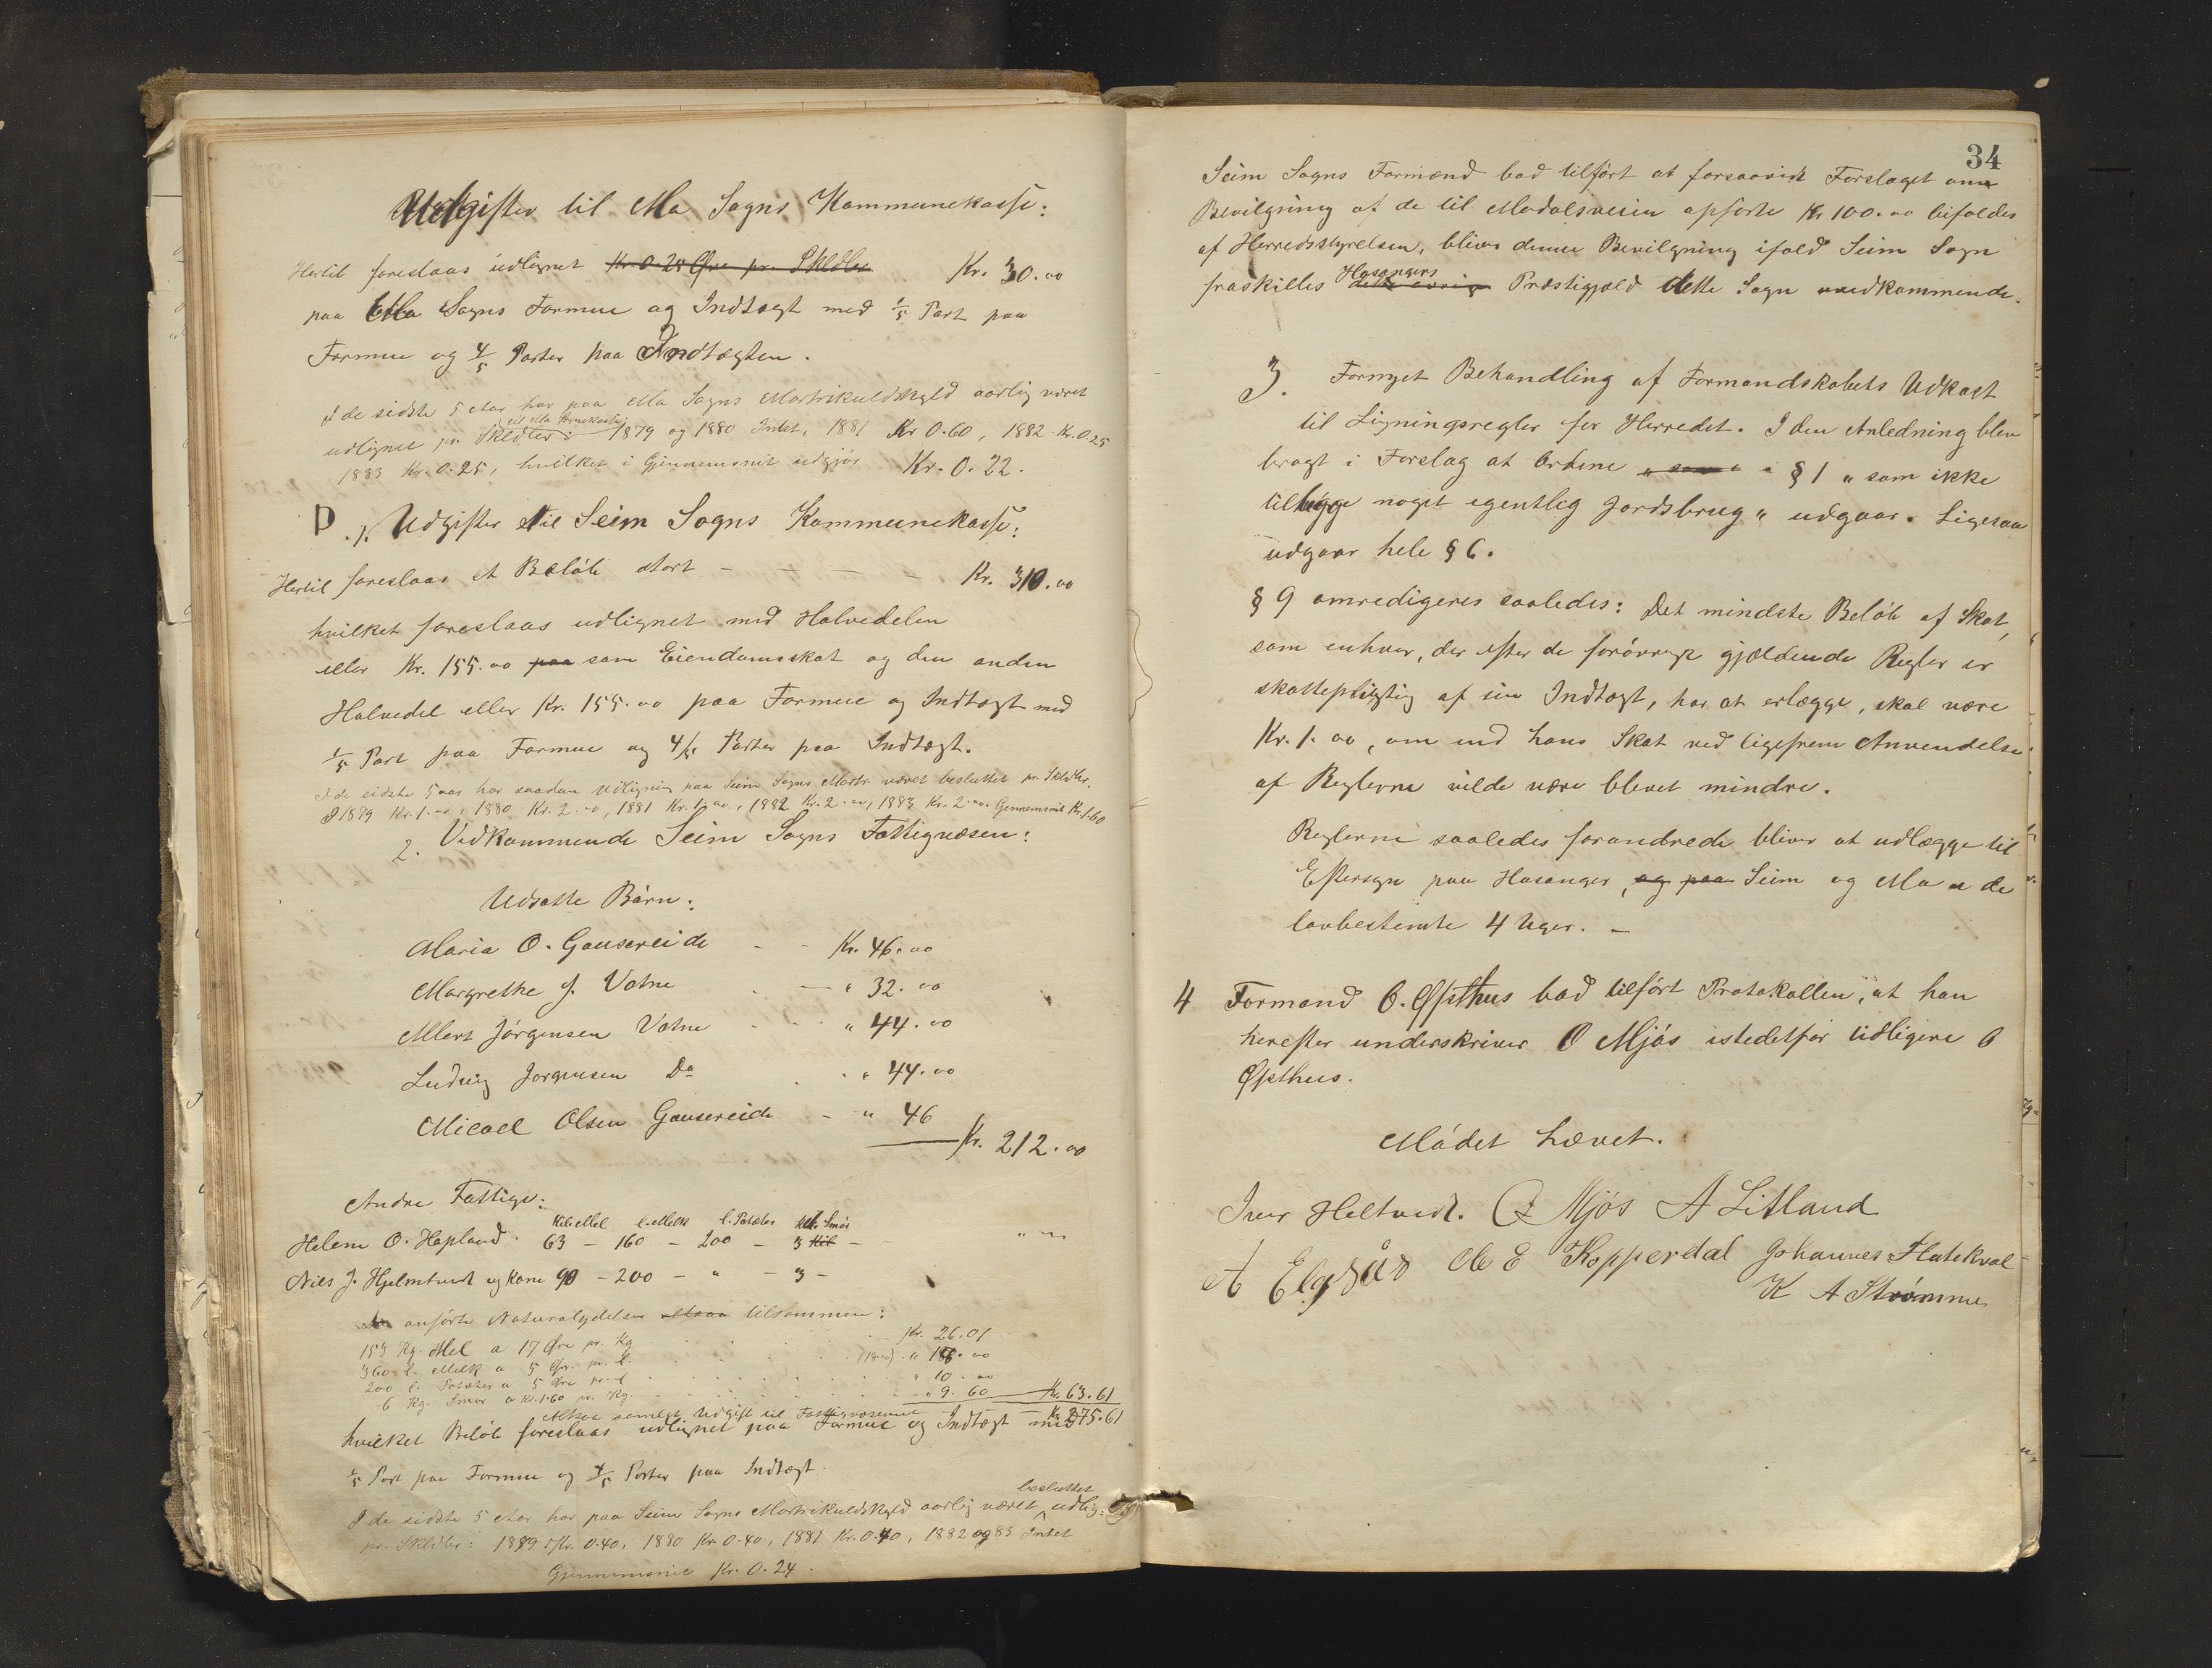 Udgifter til Mo Sogns Kommunekasse:
Hertil foreslaaes udlignet Kr. 0.25 Øre pr. Skldlr. Kr. 30.00
paa Mo Sogns Formue og Indtægt med 1/5 Part paa
Formue og 4/5 Parter paa Indtægten.
I de sidste 5 Aar har paa Mo Sogns Martrikuldskyld aarlig været
udlignet pr Skldler til Mo Sognekasse: 1879 og 1880 Intet, 1881 Kr 0.60, 1882 Kr. 0.25
1883 Kr. 0.25, hvilket i Gjennemsnit udgjør Kr. 0.22.
D. 1. Udgifter til Seim Sogns Kommunekasse:
Hertil foreslaaes et Beløb stort - - - - Kr. 310.00
hvilket foreslaaes udlignet med Halvedelen
eller Kr. 155.00 paa som Eiendomsskat og den anden
Halvedel eller Kr. 155.00 paa Formue og Indtægt med
1/5 Part paa Formue og 4/5 Parter paa Indtægt.
I de sidste 5 aar har saadan Udligning paa Seim Sogns Martr. været besluttet pr. Skldlr.
I 1879 Kr. 1.00, 1880 Kr. 2.00, 1881 Kr. 1.00, 1882 Kr. 2.00, 1883 Kr. 2.00. Gjennemsnit Kr. 1.60
2. Vedkommende Seim Sogns Fattigvæsen:
Udsatte Børn:
Maria O. Gausereide - - Kr. 46.00
Margrethe J. Votne - - " 32.00
Allert Jørgensen Votne - - " 44.00
Ludvig Jorgensen Do - - " 44.00
Micael Olsen Gausereide - " 46
Kr. 212.00
Andre Fattige:
Kil. Mel l. Melk l. Poteter Kil. Smør
Helene O. Hopland. 63 - 160 - 200 - 3 Kil - " "
Nils J. Hjelmtveit og Kone 90 - 200 - " - 3 -
anførte Naturalydelser altsaa tilsammen:
153 Kg. Mel a 17 Øre pr. Kg - Kr. 26.01
360 l. Melk a 5 Øre pr. l. (18.00) " 18.00
200 l. Poteter a 5 Øre pr. l " 10.00
6 Kg. Smør a Kr. 1.60 pr. Kg. - " 9.60 Kr. 63.61
Altsaa samlet Udgift til Fattigvæsenet - Kr. 275.61
hvilket Beløb foreslaaes udlignet paa Formue og Indtægt med
1/5 Part paa Formue og 4/5 Parter paa Indtægt.
I de sidste 5 Aar har paa Seim Sogns Martrikuldskyld aarlig været besluttet udlig:
pr. Skldlr: 1879 Kr. 0.40, 1880 Kr 0.40, 1881 Kr. 0.40, 1882 og 83 Intet
Gjennemsnit Kr. 0.24.
34
Seim Sogns Formænd bad tilført at forsaavidt Forslaget om
Bevilgning af de til Modalsveien opførte Kr 100.00 bifaldes
af Herredsstyrelsen, bliver denne Bevilgning ifald Seim Sogn
fraskilles Hosangers dette øvrige Præstigjæld dette Sogn uvedkommende.
3. Fornyet Behandling af Formandskabets Udkast
til Ligningsregler for Herredet. I den Anledning blev
bragt i Forslag at Ordene " som i § 1 " som ikke
tillægge noget egentlig Jordsbrug " udgaar. Ligesaa
udgaar hele § 6.
§ 9 omredigeres saaledes: Det mindste Beløb af Skat,
som enhver, der efter de forøvrigt gjældende Regler er
skattepligtig af sin Indtægt, har at erlægge, skal være
Kr. 1.00, om end hans Skat ved ligefrem Anvendelse
af Reglerne vilde være blevet mindre.
Reglerne saaledes forandrede bliver at udlægge til
Eftersyn paa Hosanger, og paa Seim og Mo i de
lovbestemte 4 Uger. -
4 Formand O. Øpsthus bad tilført Protokollen, at han
herefter underskriver O Mjøs istedetfor tidligere O
Øpsthus.
Mødet hævet.
Iver Heltveit. O Mjøs A Litland
A Elgsås M E Kopperdal Johannes Flatekval
K A Strømme